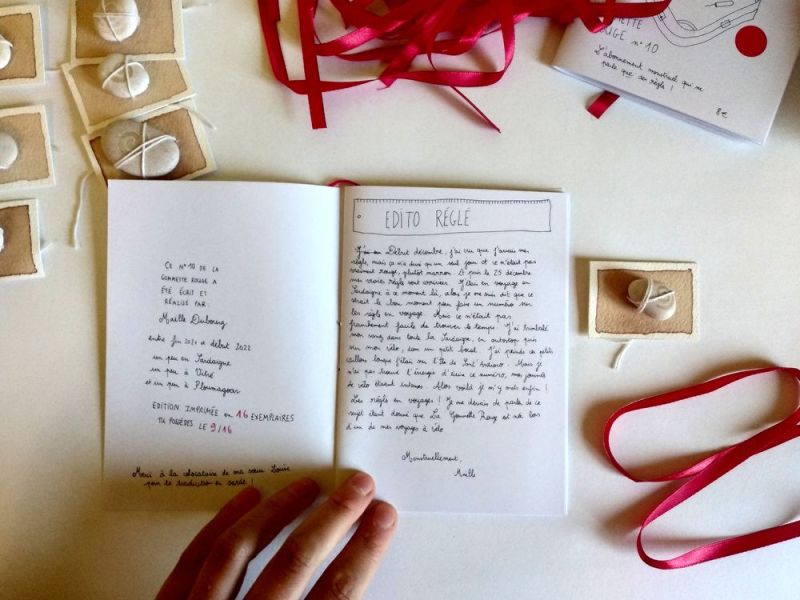 GOMMETTE
ROUGE n°10
L'abonnement menstruel qui ne
parle que des règles !
8€
CE N°10 DE LA
GOMMETTE ROUGE A
ÉTÉ ÉCRIT ET
RÉALISÉ PAR
Maëlle Dubourg
entre fin 2021 et début 2022
un peu en Sardaigne
un peu à Vitré
et un peu à Ploumagoar
EDITION IMPRIMÉE en 16 EXEMPLAIRES
TU POSSÈDES LE 9/16
Merci à la colocataire de ma sœur Louise
pour la traduction en sarde !
EDITO RÉGLÉ
Début décembre, j'ai cru que j'aurais mes
règles, mais ça n'a duré qu'un seul jour et ce n'était pas
vraiment rouge, plutôt marron. Et puis le 25 décembre
mes vraies règles sont arrivées. J'étais en voyage en
Sardaigne à ce moment là, alors je me suis dit que ce
serait le bon moment pour faire un numéro sur
les règles en voyage. Mais ce n'était pas
franchement facile de trouver le temps. J'ai trimballé
mon sang dans toute la Sardaigne, en autostop puis
sur mon vélo, dans un petit bocal. J'ai peindre ces petits
cailloux lorsque j'étais sur l'île de Sant'Antioco. Mais je
n'ai pas trouvé l'énergie d'écrire ce numéro, mes journées
de vélo étaient intenses. Alors voilà je m'y mets enfin !
Les règles en voyages ! Je me devais de parler de ce
sujet étant donné que La Gommette Rouge est née lors
d'un de mes voyages à vélo
Menstruellement,
Maëlle